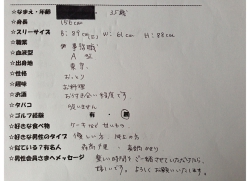 ☆なまえ・年齢 35歳
☆身長 156cm
☆スリーサイズ B:89(E) W:61cm H:88cm
☆職業 事務職
☆血液型 A型
☆出身地 東京
☆性格 おっとり
☆趣味 お料理
☆お酒 お付き合い程度です
☆タバコ 吸いません
☆ゴルフ経験 有・無
☆好きな食べ物 ケーキ
☆好きな男性のタイプ 優しい方
☆似ている?有名人
☆男性会員さまへメッセージ 楽しい時間をご一緒させていただけたら、
嬉しいです。よろしくお願いいたします。